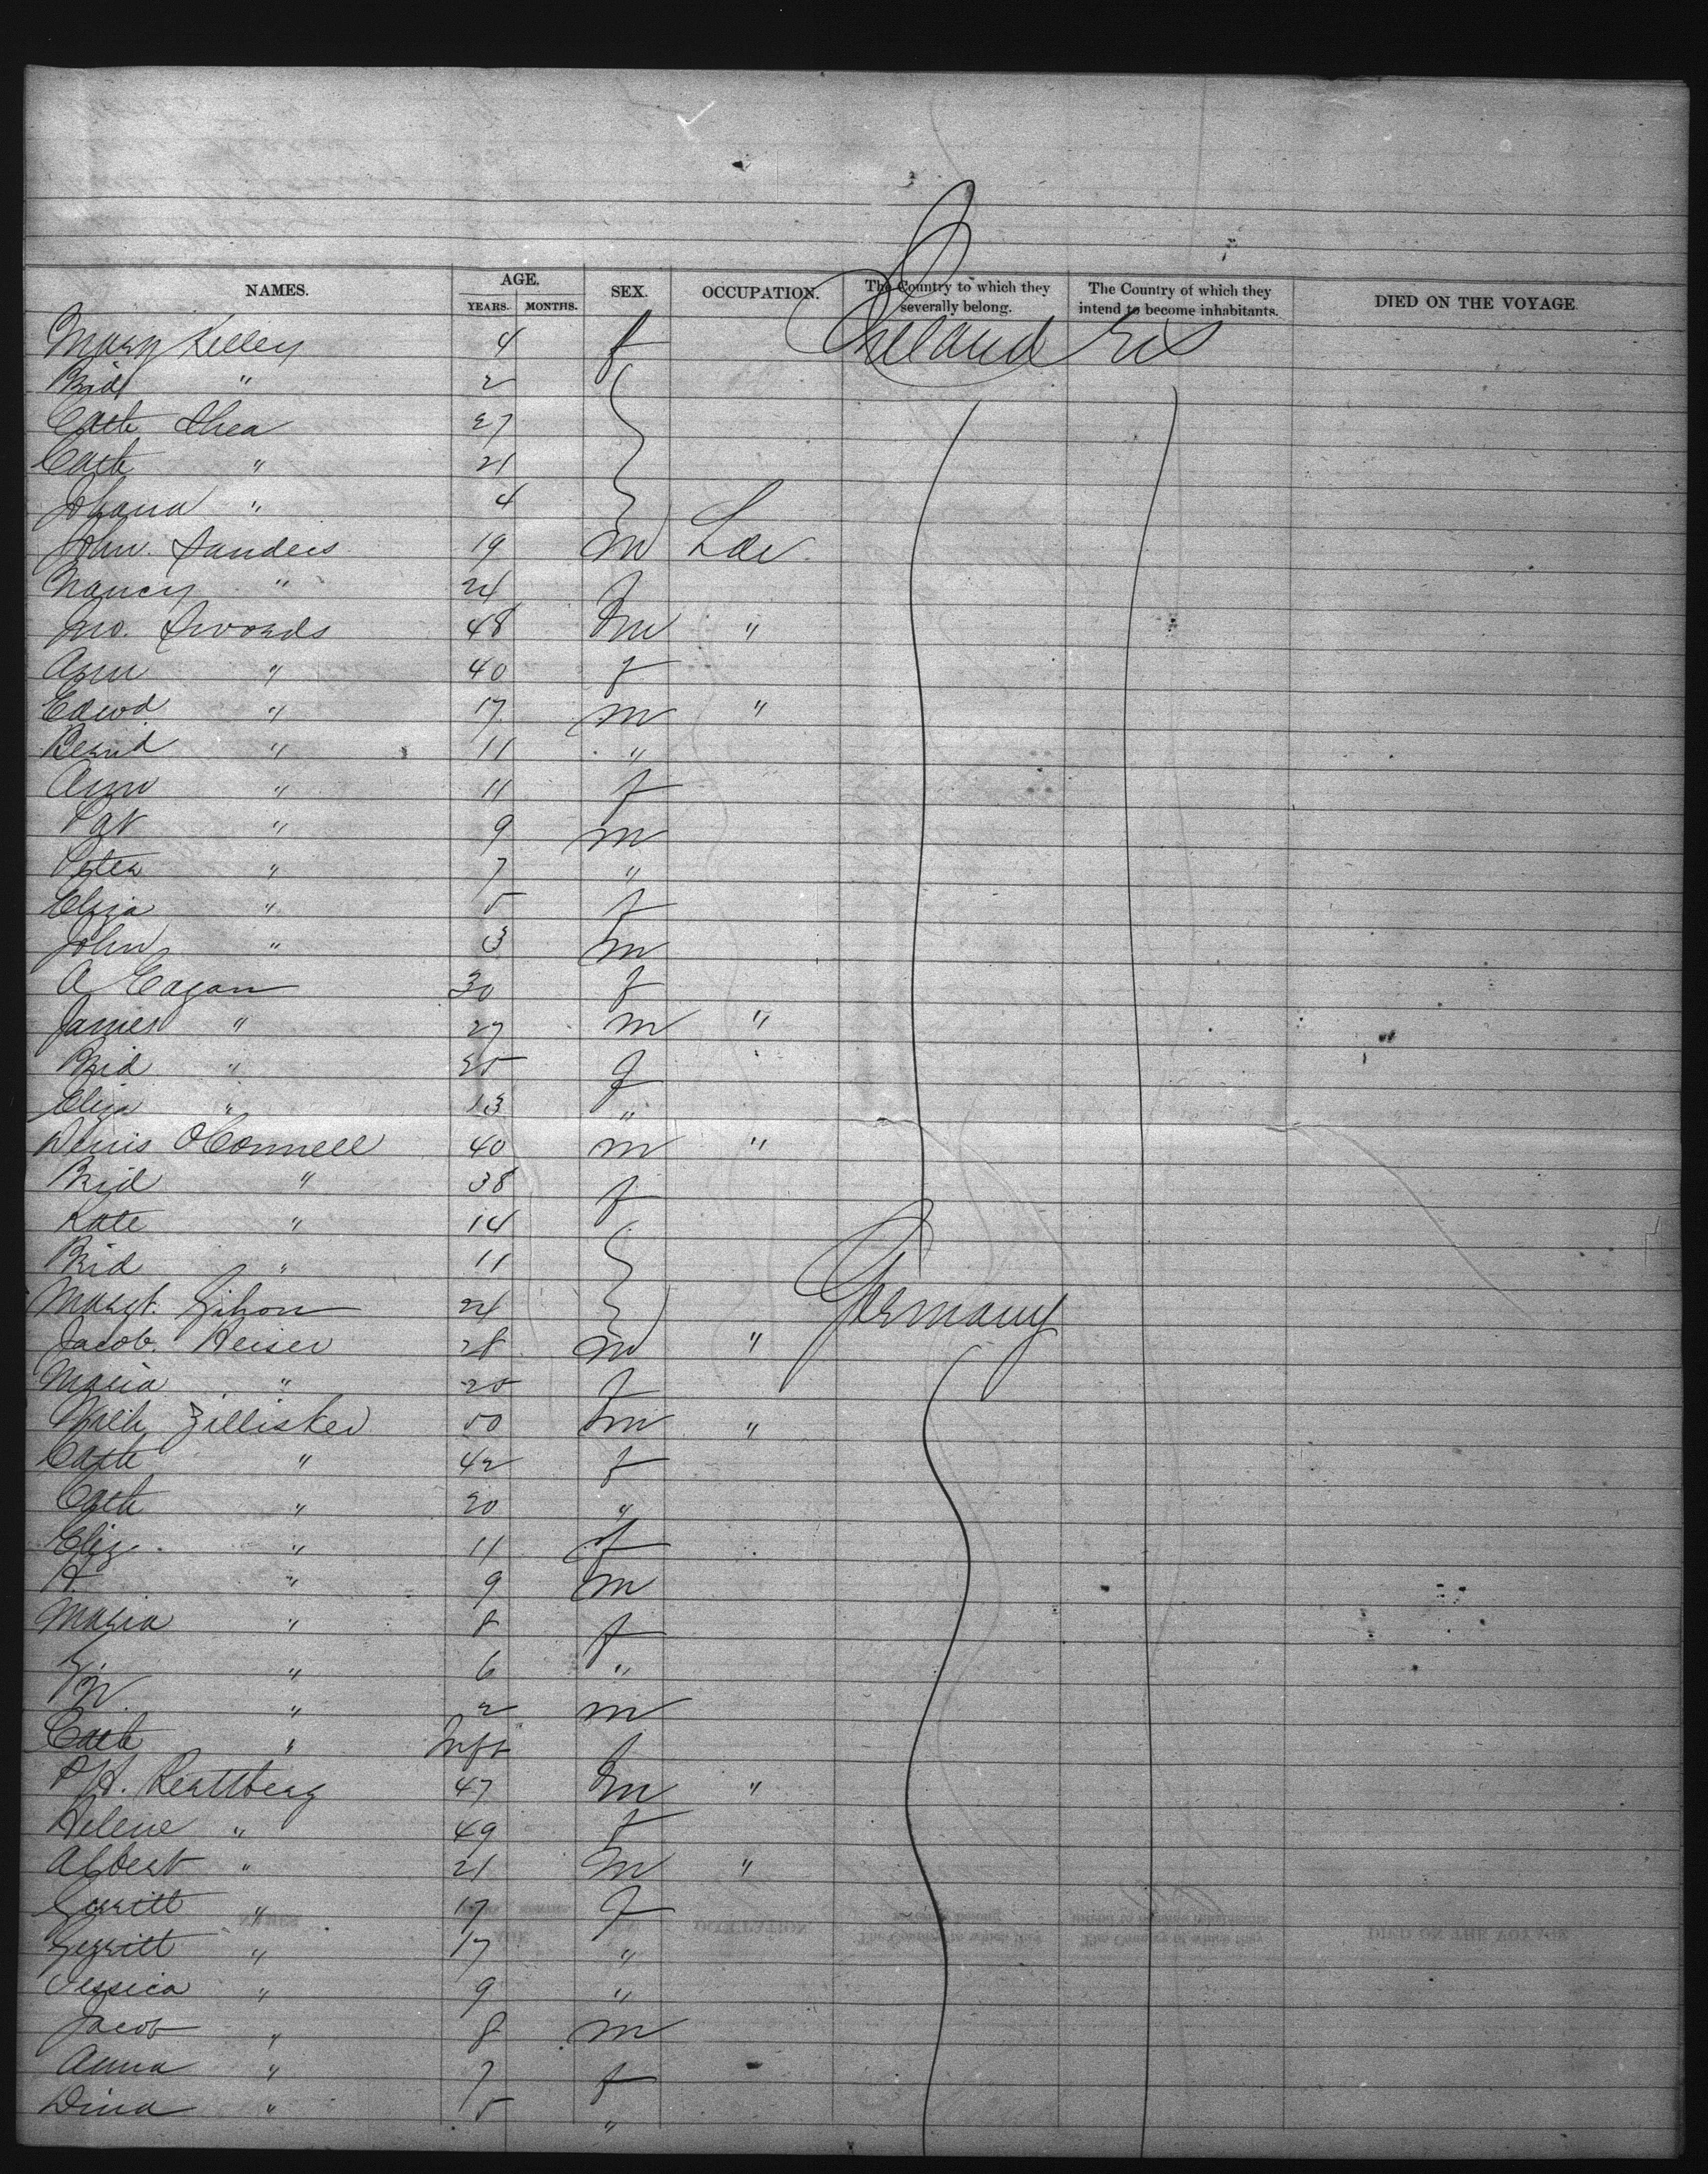 NAMES. AGE. SEX. OCCUPATION. The Country to which they severally belong. The Country of which they intend to become inhabitants. DIED ON THE VOYAGE.
YEARS. MONTHS.
Mary Kelley 4 f Ireland
Brid " 2
Cath Shea 27
Cath " 21
Johana " 4
John Sanders 19 m Lar
Nancy " 24 f
Jno. Swords 48 m "
Ann " 40 f
Edwd " 17 m "
Bernd " 11 "
Ann " 11 f
Pat " 9 m
Peter " 7 "
Eliza " 5 f
John " 3 m
A Eagan 30 f
James " 27 m "
Brid " 25 f
Eliza " 13 "
Denis OConnell 40 m "
Brid " 38 f
Kate " 14
Brid " 11
Margt. 24 Germany
Jacob. Heiser 28 m "
Maria " 25 f
Zillisker 50 m "
Cath " 42 f
Cath " 20 "
Eliz " 11 f
H. " 9 m
Maria " 8 f
" 6 "
" 2 m
Cath " Inft f
47 m "
Helene " 49 f
Albert " 21 m "
Gerritt " 17 f
Gerritt " 17 "
Jessica " 9 "
Jacob " 8 m
Anna " 7 f
Dina " 5 "